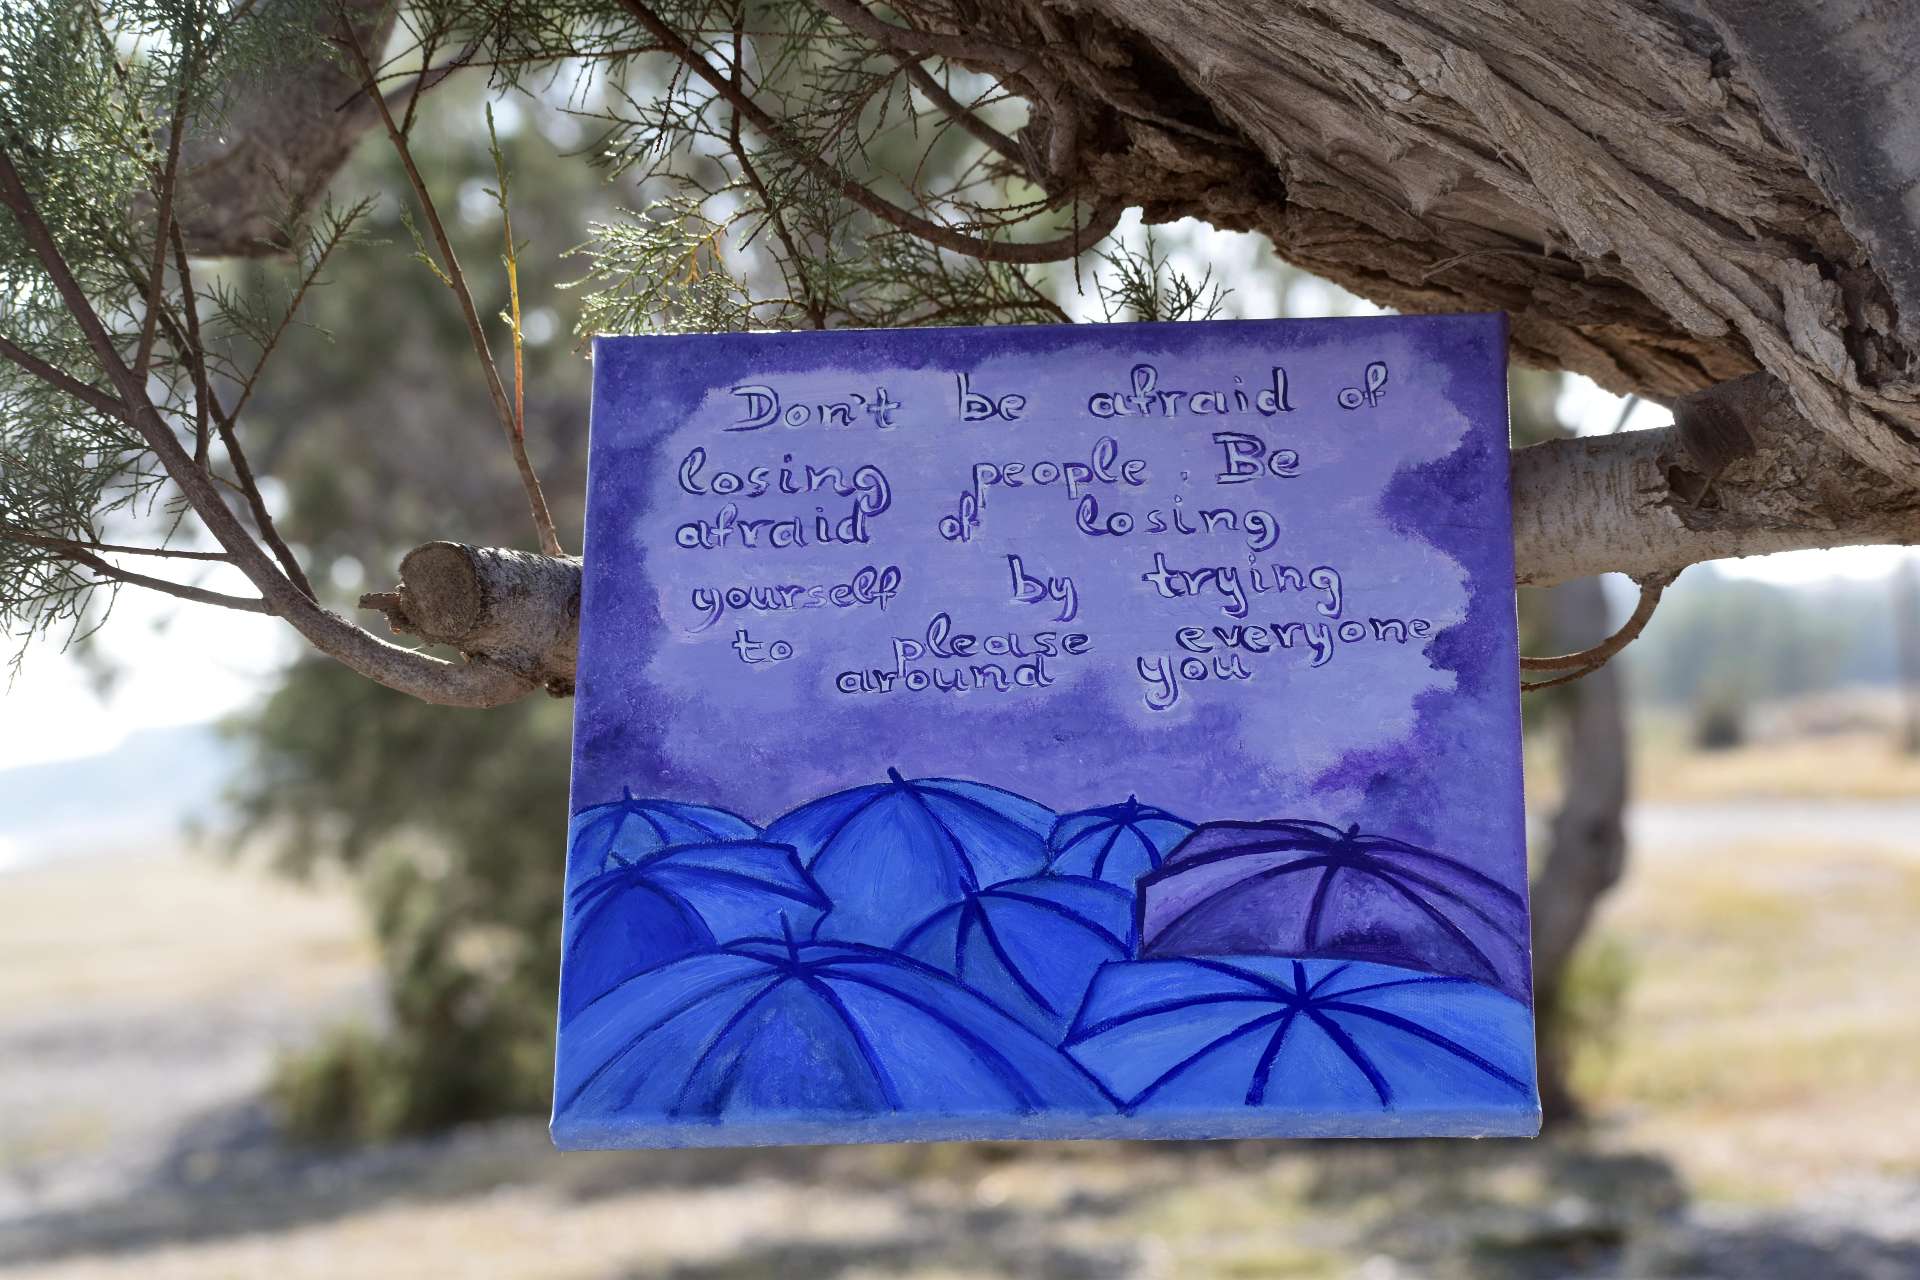 Don't be afraid of
losing people. Be
afraid of losing
yourself by trying
to please everyone
around you